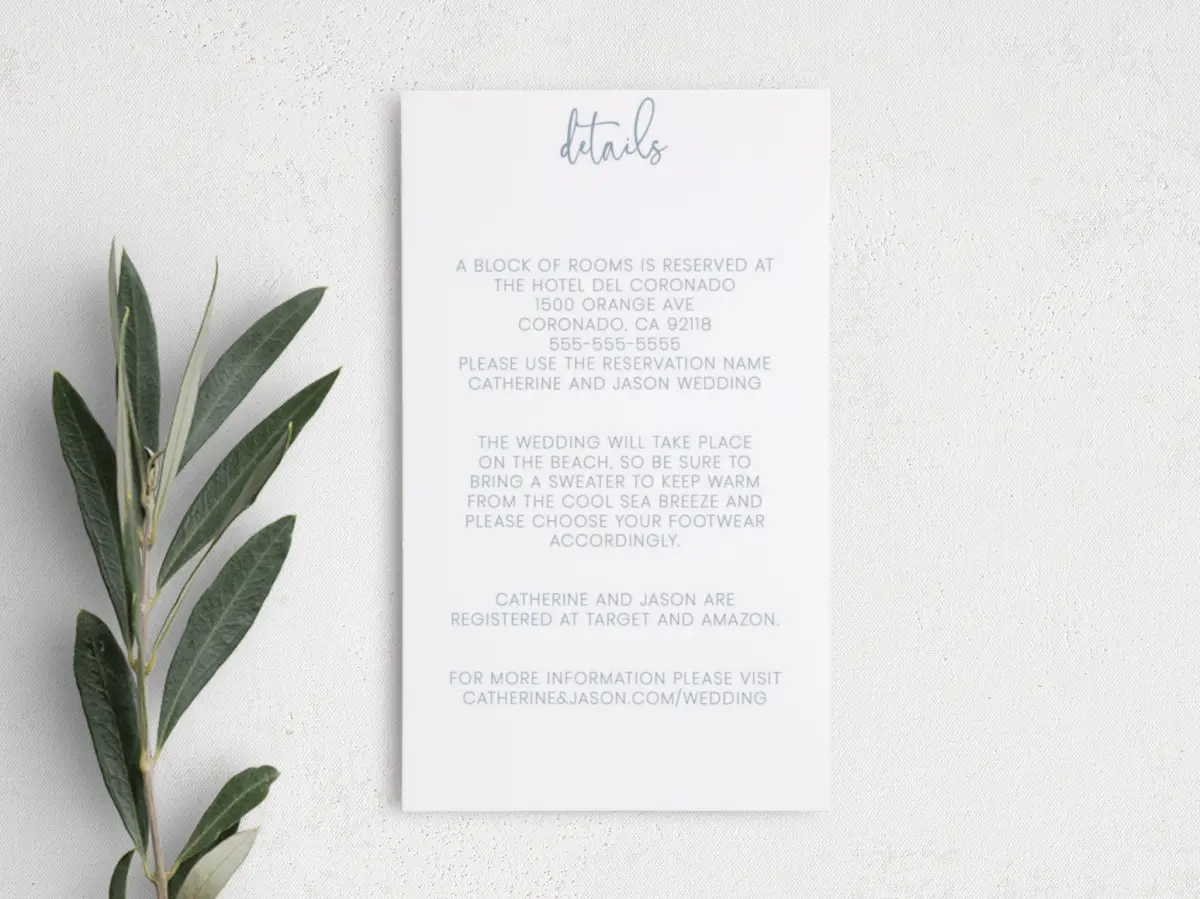 details
A BLOCK OF ROOMS IS RESERVED AT
THE HOTEL DEL CORONADO
1500 ORANGE AVE
CORONADO, CA 92118
555-555-5555
PLEASE USE THE RESERVATION NAME
CATHERINE AND JASON WEDDING
THE WEDDING WILL TAKE PLACE
ON THE BEACH, SO BE SURE TO
BRING A SWEATER TO KEEP WARM
FROM THE COOL SEA BREEZE AND
PLEASE CHOOSE YOUR FOOTWEAR
ACCORDINGLY.
CATHERINE AND JASON ARE
REGISTERED AT TARGET AND AMAZON.
FOR MORE INFORMATION PLEASE VISIT
CATHERINE&JASON.COM/WEDDING